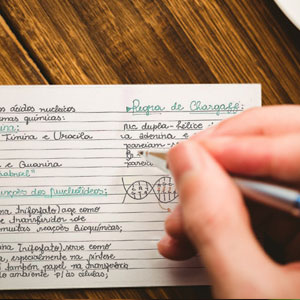 os ácidos nucleicos
mas químicas:
Timina e Uracila
e Guanina
Regra de Chargaff:
Na dupla-hélice
a adenina e
pareiam-se
nções dos Nucleotídeos:
na Trifosfato) age como
e transferidor de
muitas reações Bioquímicas;
na Trifosfato) serve como
a, especialmente na síntese
também papel na transferência
ambiente p/ as células;